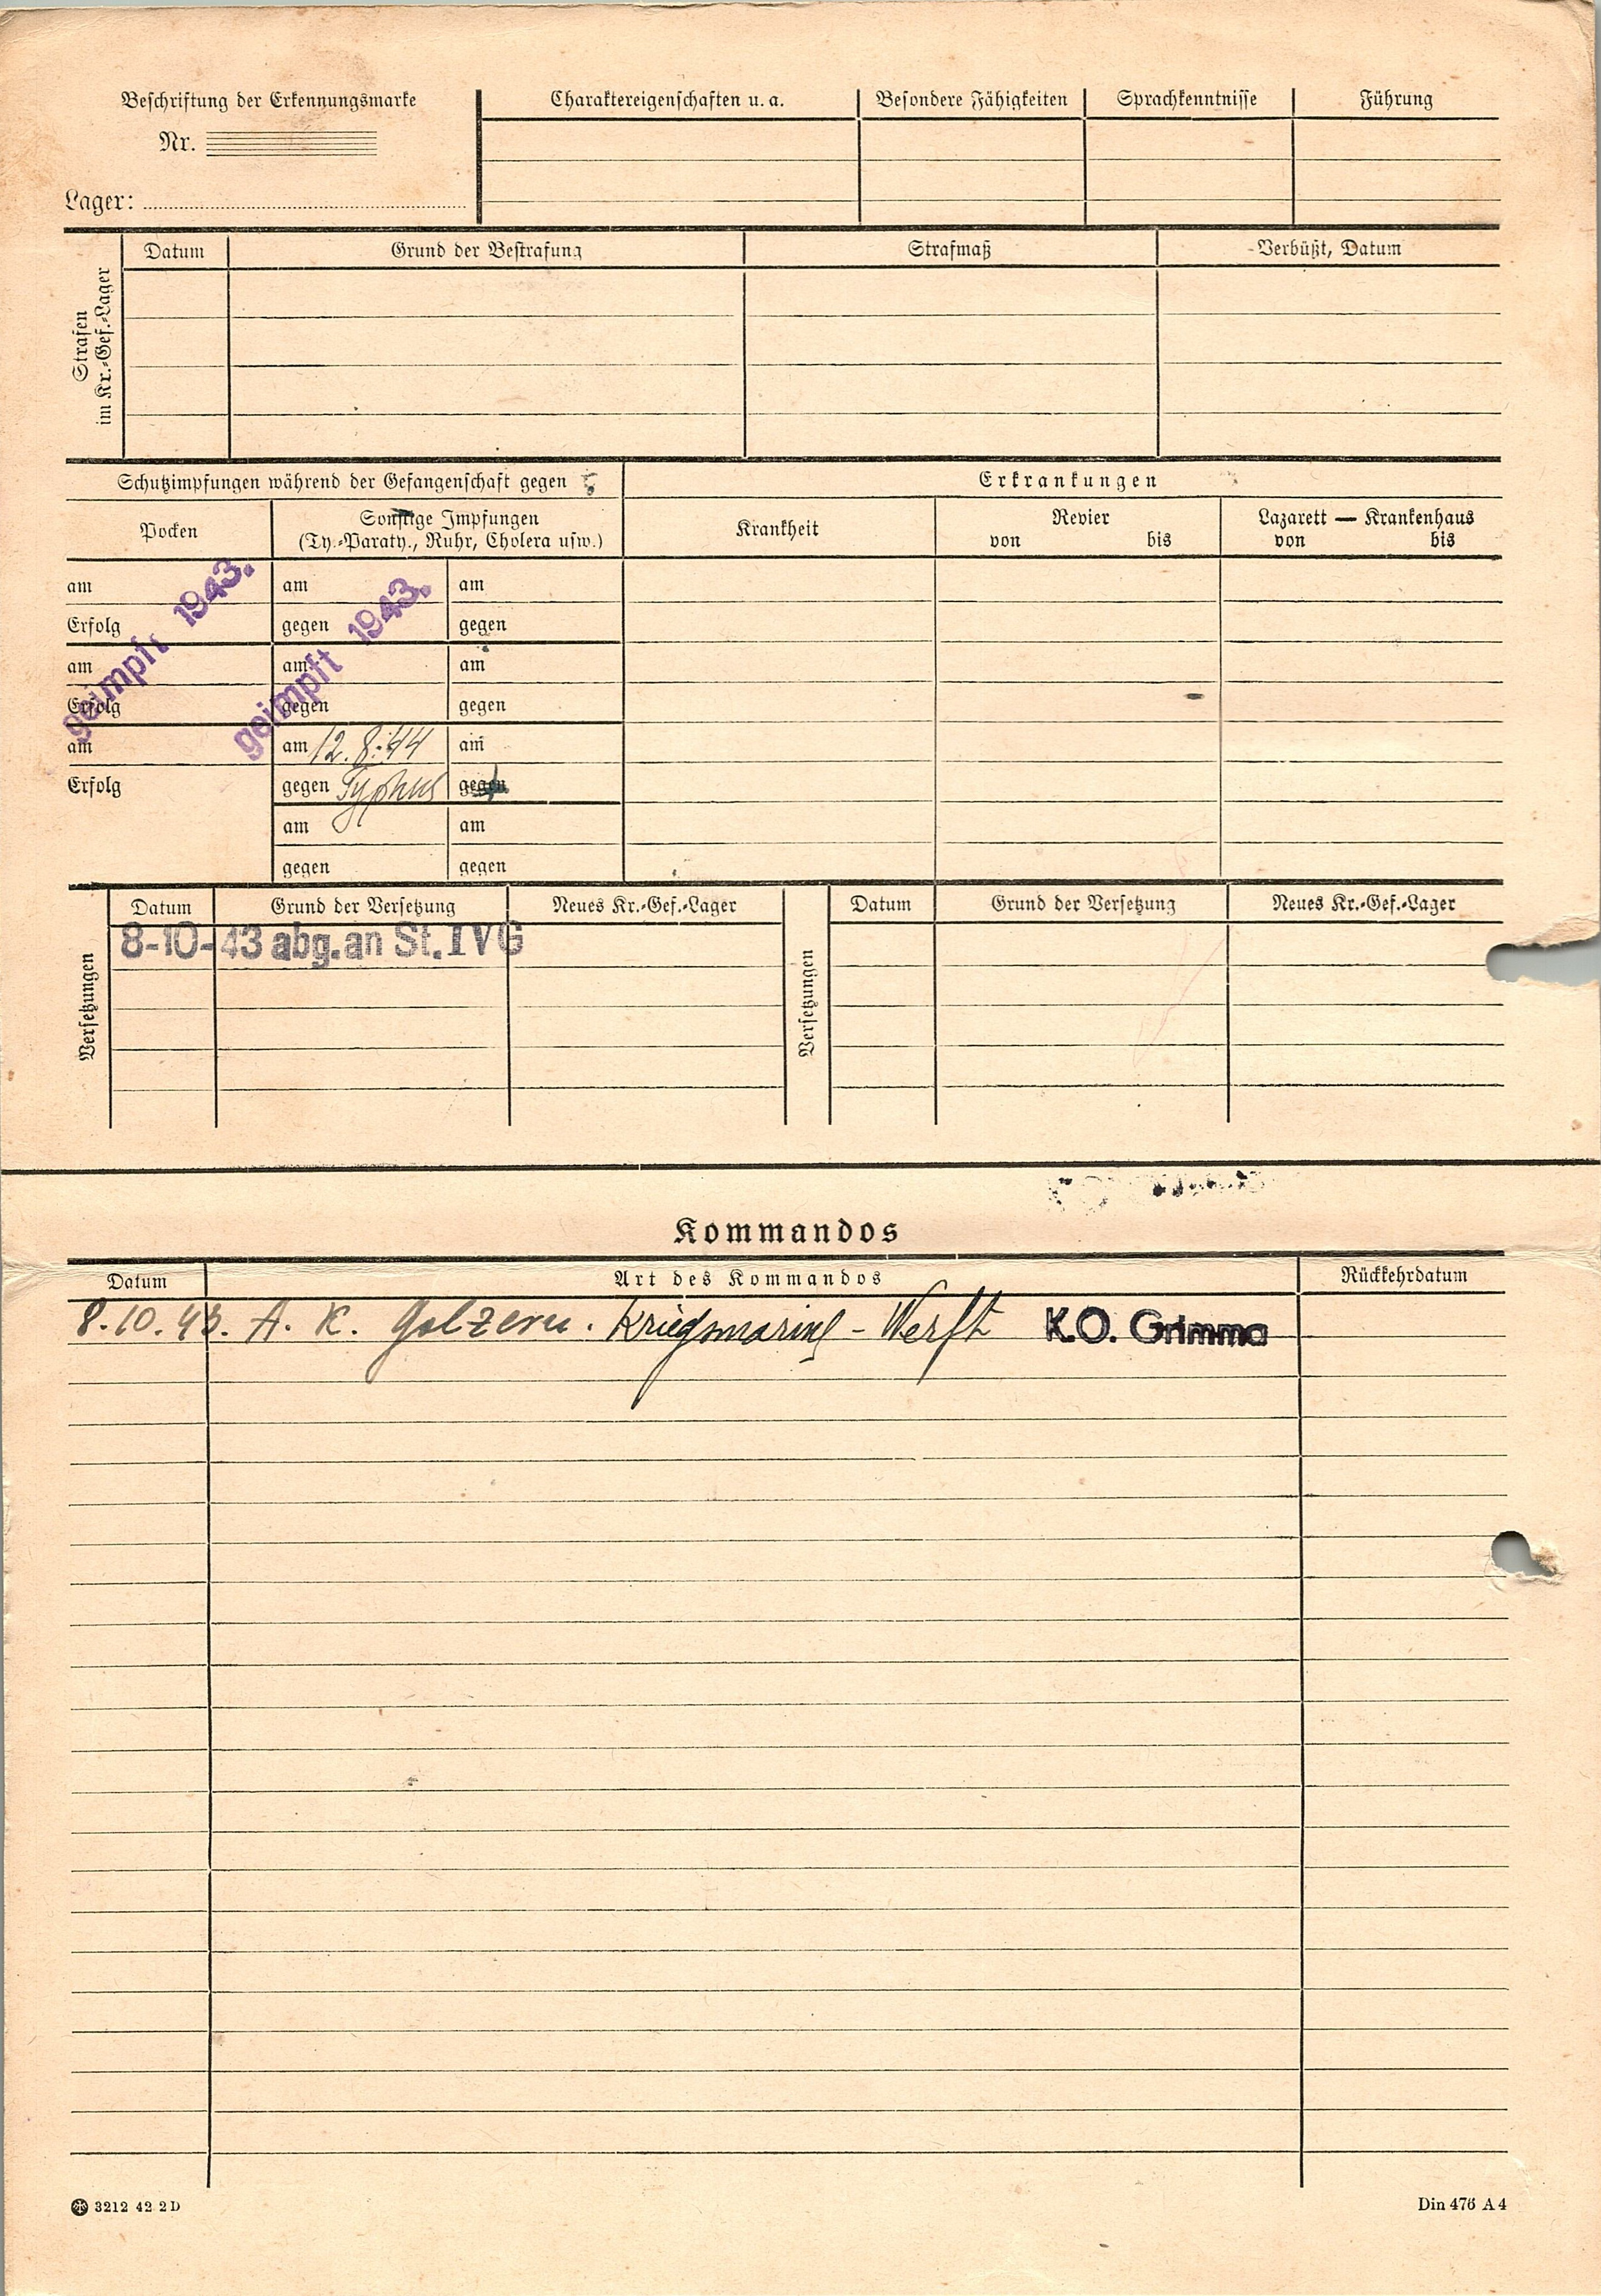 Beschriftung der Erkennungsmarke
Nr.
Lager:
Charaktereigenschaften u. a.
Besondere Fähigkeiten
Sprachkenntnisse
Führung
Strafen
im Kr.-Gef.-Lager
Datum
Grund der Bestrafung
Strafmaß
Verbüßt, Datum
Schutzimpfungen während der Gefangenschaft gegen
Erkrankungen
Pocken
Sonstige Impfungen
(Ty.-Paraty., Ruhr, Cholera usw.)
Krankheit
Revier
von bis
Lazarett — Krankenhaus
von bis
am
Erfolg
am
Erfolg
am
Erfolg
geimpft 1943.
am
gegen
am
gegen
geimpft 1943.
am 12.8.44
gegen Typhus
am
gegen
am
gegen
am
gegen
am
gegen
am
gegen
Versetzungen
Datum
Grund der Versetzung
Neues Kr.-Gef.-Lager
8-10-43 abg. an St. IVG
Versetzungen
Datum
Grund der Versetzung
Neues Kr.-Gef.-Lager
Kommandos
Datum
Art des Kommandos
Rückkehrdatum
8.10.43. A. K. Golzern. Kriegsmarine-Werft K.O. Grimma
3212 42 2 D
Din 476 A 4